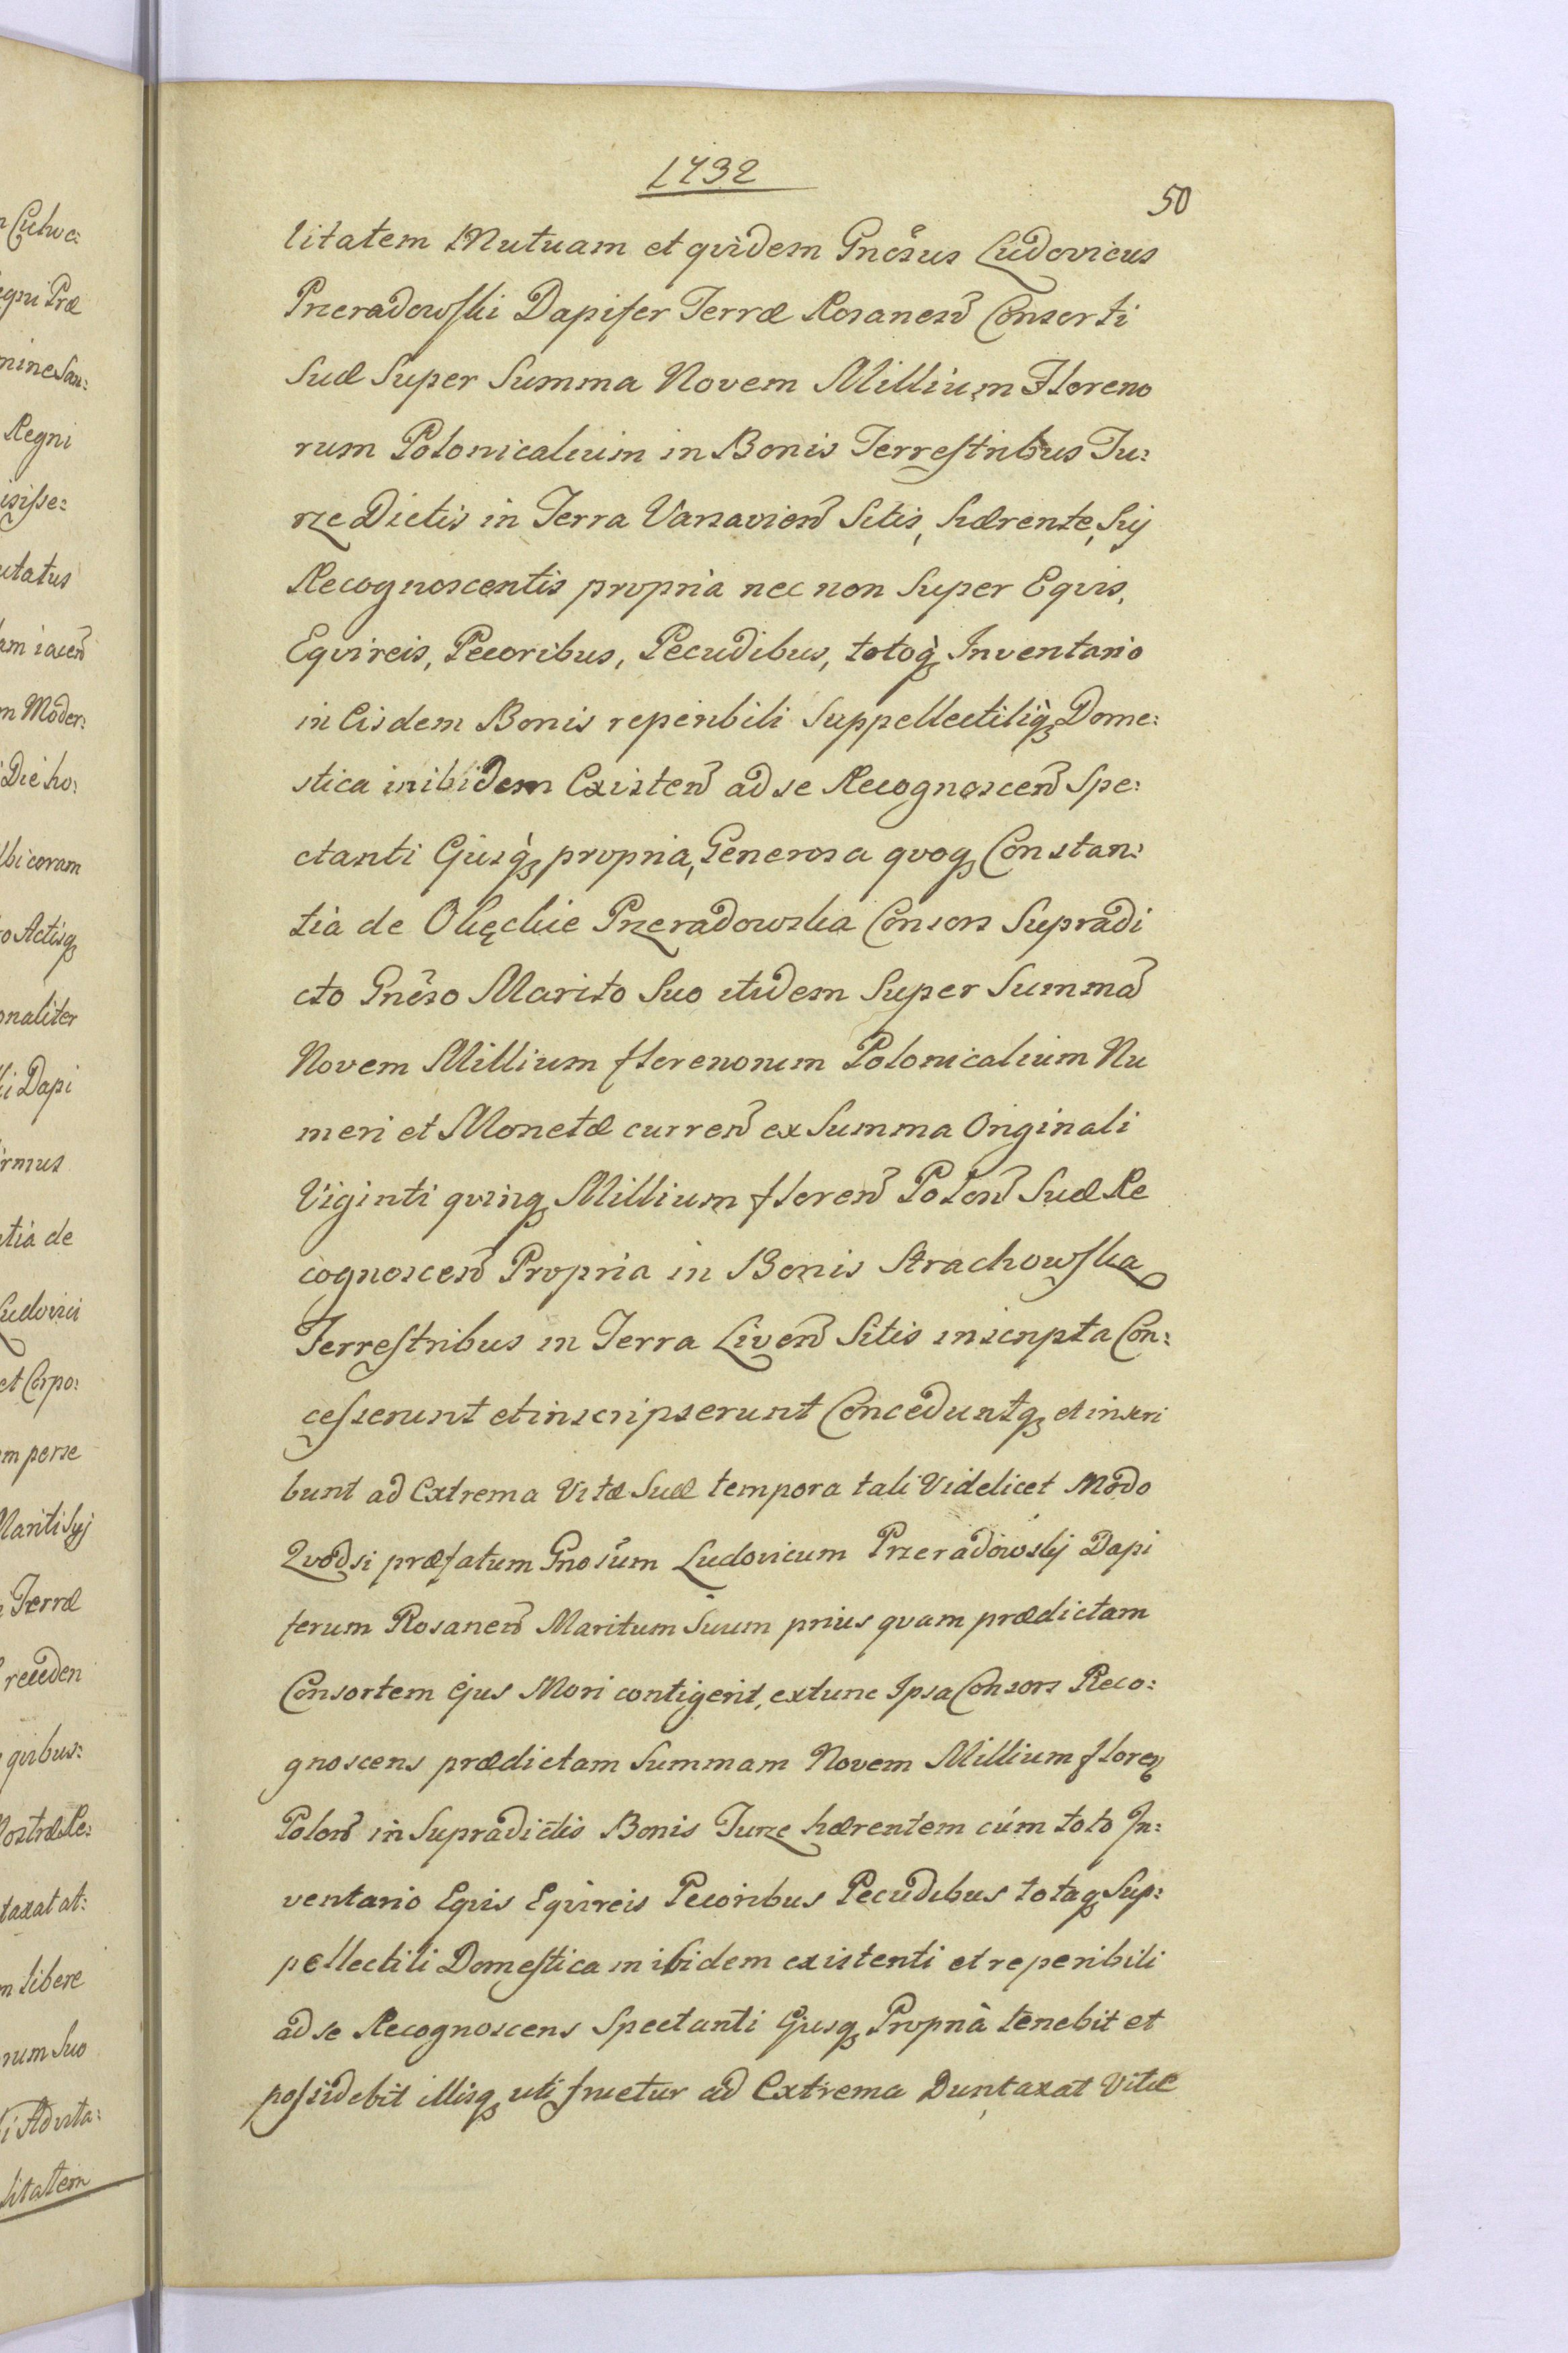 1732
50
litatem Mutuam et qvidem Gnosus Ludovicus
Przeradowski Dapifer Terræ Rosanen Consorti
Suæ Super Summa Novem Millium Floreno
rum Polonicalium in Bonis Terrestribus Tu:
rze Dictis in Terra Varsavien Sitis, hærente, Sij
Recognoscentis propria nec non Super Eqvis,
Eqvireis, Pecoribus, Pecudibus, totoq, Inventario
in Eisdem Bonis reperibili Suppellectiliq, Dome:
stica inibidem Existen ad se Recognoscen Spe:
ctanti Ejusq, propria, Generosa qvoq, Constan:
tia de Okęckie Przeradowska Consors Supradi
cto Gnoso Marito Suo itidem Super Summa
Novem Millium florenorum Polonicalium Nu
meri et Monetæ curren ex Summa Originali
Viginti qvinq, Millium floren Polon Suæ Re
cognoscen Propria in Bonis Strachowska
Terrestribus in Terra Liven Sitis inscripta Con:
cesserunt et inscripserunt Conceduntq, et inscri
bunt ad Extrema Vitæ Suæ tempora tali Videlicet Modo
Qvodsi præfatum Gnosum Ludovicum Przeradowskij Dapi
ferum Rosanen Maritum Suum prius qvam prædictam
Consortem Ejus Mori contigerit, extunc Ipsa Consors Reco:
gnoscens prædictam Summam Novem Millium floren
Polon in Supradictis Bonis Turze hærentem cúm toto In:
ventario Eqvis Eqvireis Pecoribus Pecudibus totaq, Sup:
pellectili Domestica inibidem existenti et reperibili
ad se Recognoscens Spectanti Ejusq, Propria tenebit et
possidebit illisq, uti fruetur ad Extrema Duntaxat Vitæ